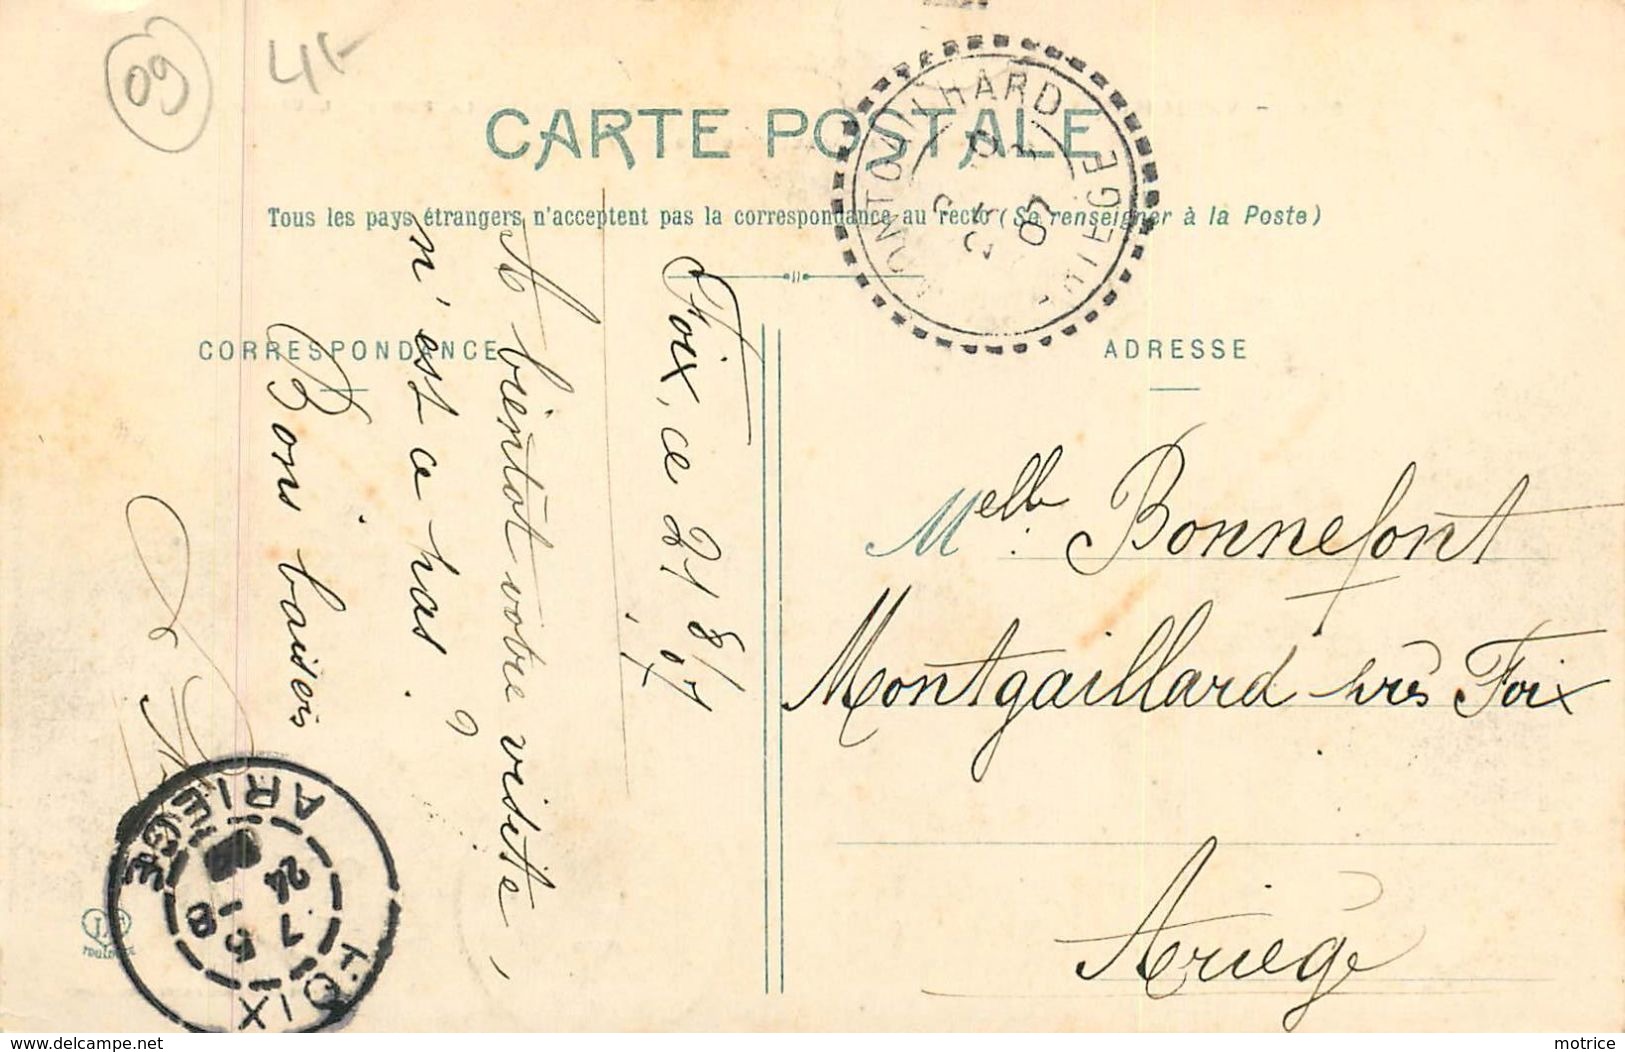 09
4f
CARTE POSTALE
Tous les pays étrangers n'acceptent pas la correspondance au recto (Se renseigner à la Poste)
CORRESPONDANCE
ADRESSE
Foix, ce 21/8/07
A bientot votre visite,
n'est ce pas. ?
Bons baisers
Melle. Bonnefont
Montgaillard près Foix
Ariège
ARIEGE
FOIX
TOULOUSE
www.delcampe.net
motrice